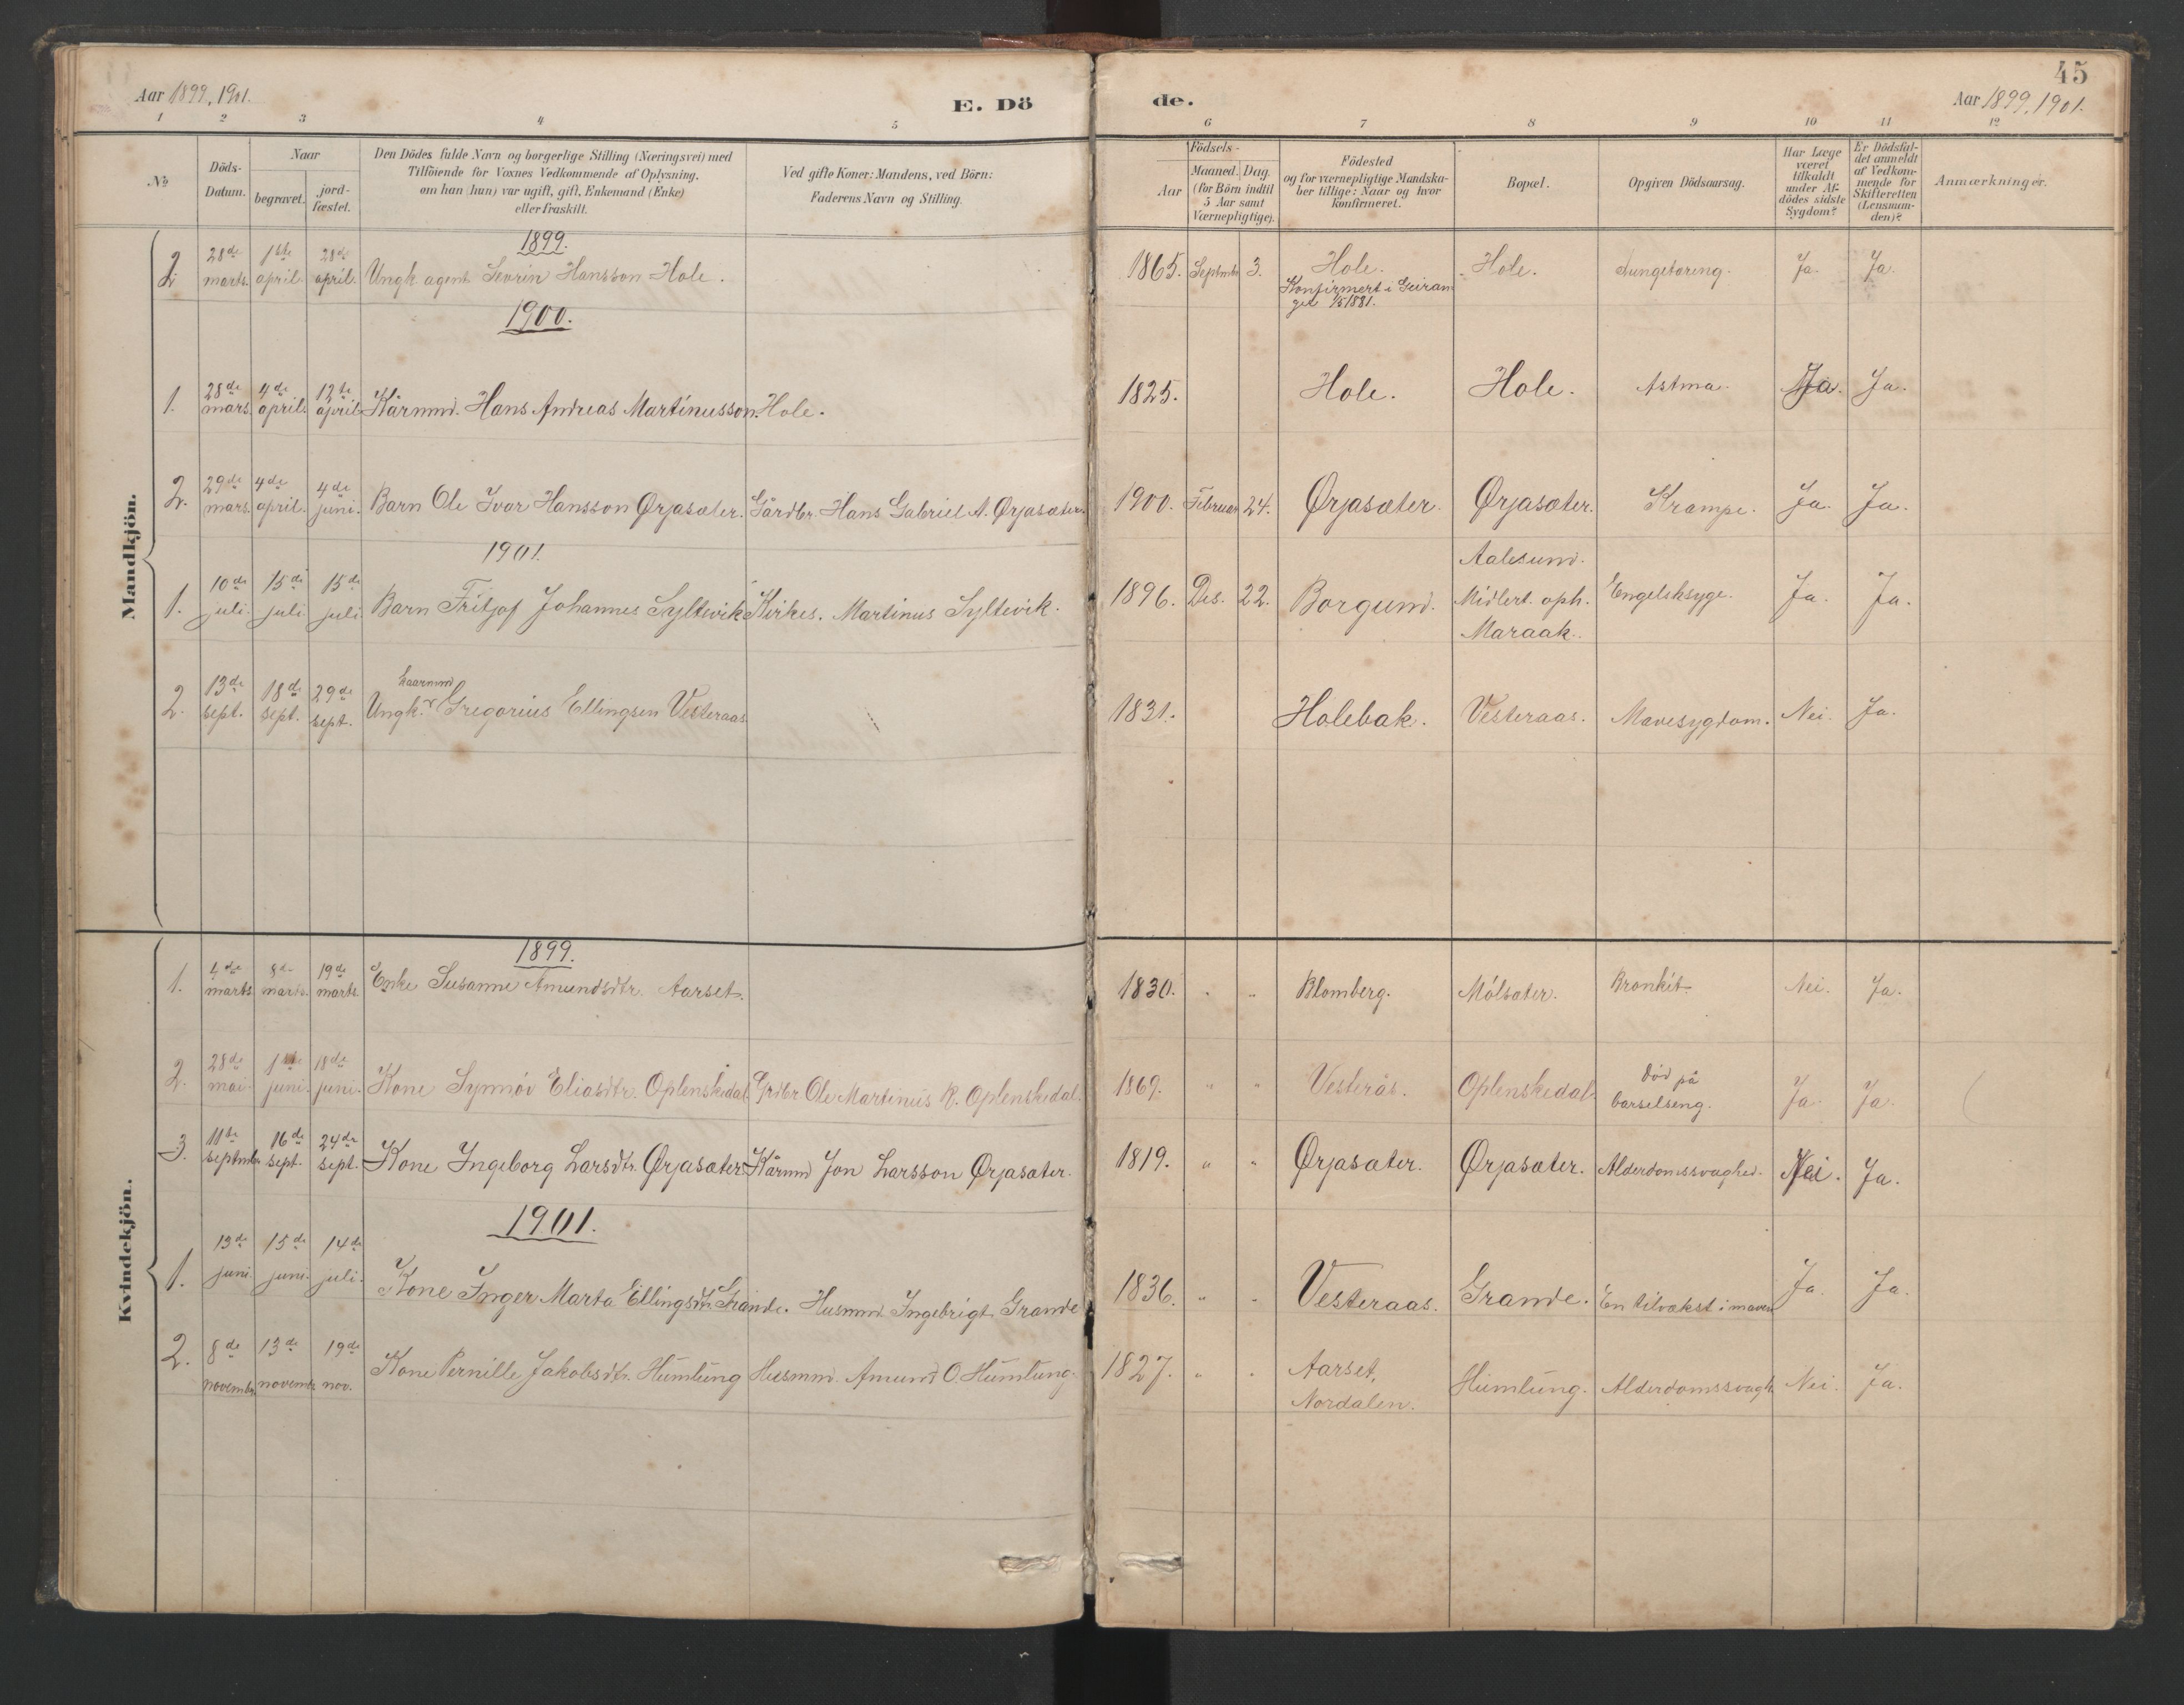 45
Aar 1899, 1901.
E. Dö de.
Aar 1899, 1901.
1 2 3 4 5 6 7 8 9 10 11 12
№
Döds-Datum.
Naar
begravet.
jord-fæstet.
Den Dödes fulde Navn og borgerlige Stilling (Næringsvei) med
Tilföiende for Voxnes Vedkommende af Oplysning.
om han (hun) var ugift, gift, Enkemand (Enke)
eller fraskilt.
Ved gifte Koner: Mandens, ved Börn:
Faderens Navn og Stilling.
Födsels-
Aar
Maaned. Dag.
(for Börn indtil
5 Aar samt
Værnepligtige).
Födested
og for værnepligtige Mandska-
ber tillige: Naar og hvor
konfirmeret.
Bopæl.
Opgiven Dödsaarsag.
Har Læge
været
tilkaldt
under Af-
dödes sidste
Sygdom?
Er Dödsfal-
det anmeldt
af Vedkom-
mende for
Skifteretten
(Lensman-
den)?
Anmærkninger.
Mandkjön.
1899.
2. 28de marts. 1ste april. 28de april. Ungk. agent Sevrin Hansson Hole. 1865. Septmbr 3. Hole. Konfirmert i Geiranger 1/5 1881. Hole. Lungetæring. Ja. Ja.
1900.
1. 28de mars. 4de april. 12te april. Kårmnd. Hans Andreas Martinusson Hole. 1825. Hole. Hole. Astma. Ja. Ja.
2. 29de mars. 4de april. 4de juni. Barn Ole Ivar Hansson Ørjasæter. Gårdbr. Hans Gabriel A. Ørjasæter. 1900. Februar 24. Ørjasæter. Ørjasæter. Krampe. Ja. Ja.
1901.
1. 10de juli. 15de juli. 15de juli. Barn Fritjof Johannes Syltevik Kirkes. Martinus Syltevik. 1896. Des. 22. Borgund. Aalesund. Midlert. oph. Maraak. Engelsksyge. Ja. Ja.
2. 13de sept. 18de sept. 29de sept. Ungk. kaarmnd Gregorius Ellingsen Vesteraas 1831. Holebak. Vesteraas. Mavesygdom. Nei. Ja.
Kvindekjön.
1899.
1. 4de marts. 8de marts. 19de marts. Enke Susanne Amundsdtr. Aarset. 1830. " " Blomberg. Mólsæter. Bronkit. Nei. Ja.
2. 28de mai. 1ste juni. 18de juni. Kone Synnóv Eliasdtr. Oplenskedal. Grdbr Ole Martinus R. Oplenskedal. 1869. " " Vesterås. Oplenskedal. Död på barselseng. Ja. Ja.
3. 11te septmbr 16de sept. 24de sept. Kone Ingeborg Larsdtr. Ørjasæter Kårmnd Jon Larsson Ørjasæter. 1819. " " Ørjasæter. Ørjasæter. Alderdomssvaghed. Nei. Ja.
1901.
1. 13de juni. 15de juni. 14de juli. Kone Inger Marta Ellingsdtr. Grande. Husmnd. Ingebrigt Grande 1836. " " Vesteraas. Grande. En tilvækst i maven Ja. Ja.
2. 8de novembr. 13de novembr. 19de nov. Kone Pernille Jakobsdtr. Humlung Husmnd. Amund O. Humlung. 1827. " " Aarset, Nordalen. Humlung. Alderdomssvagh. Nei. Ja.